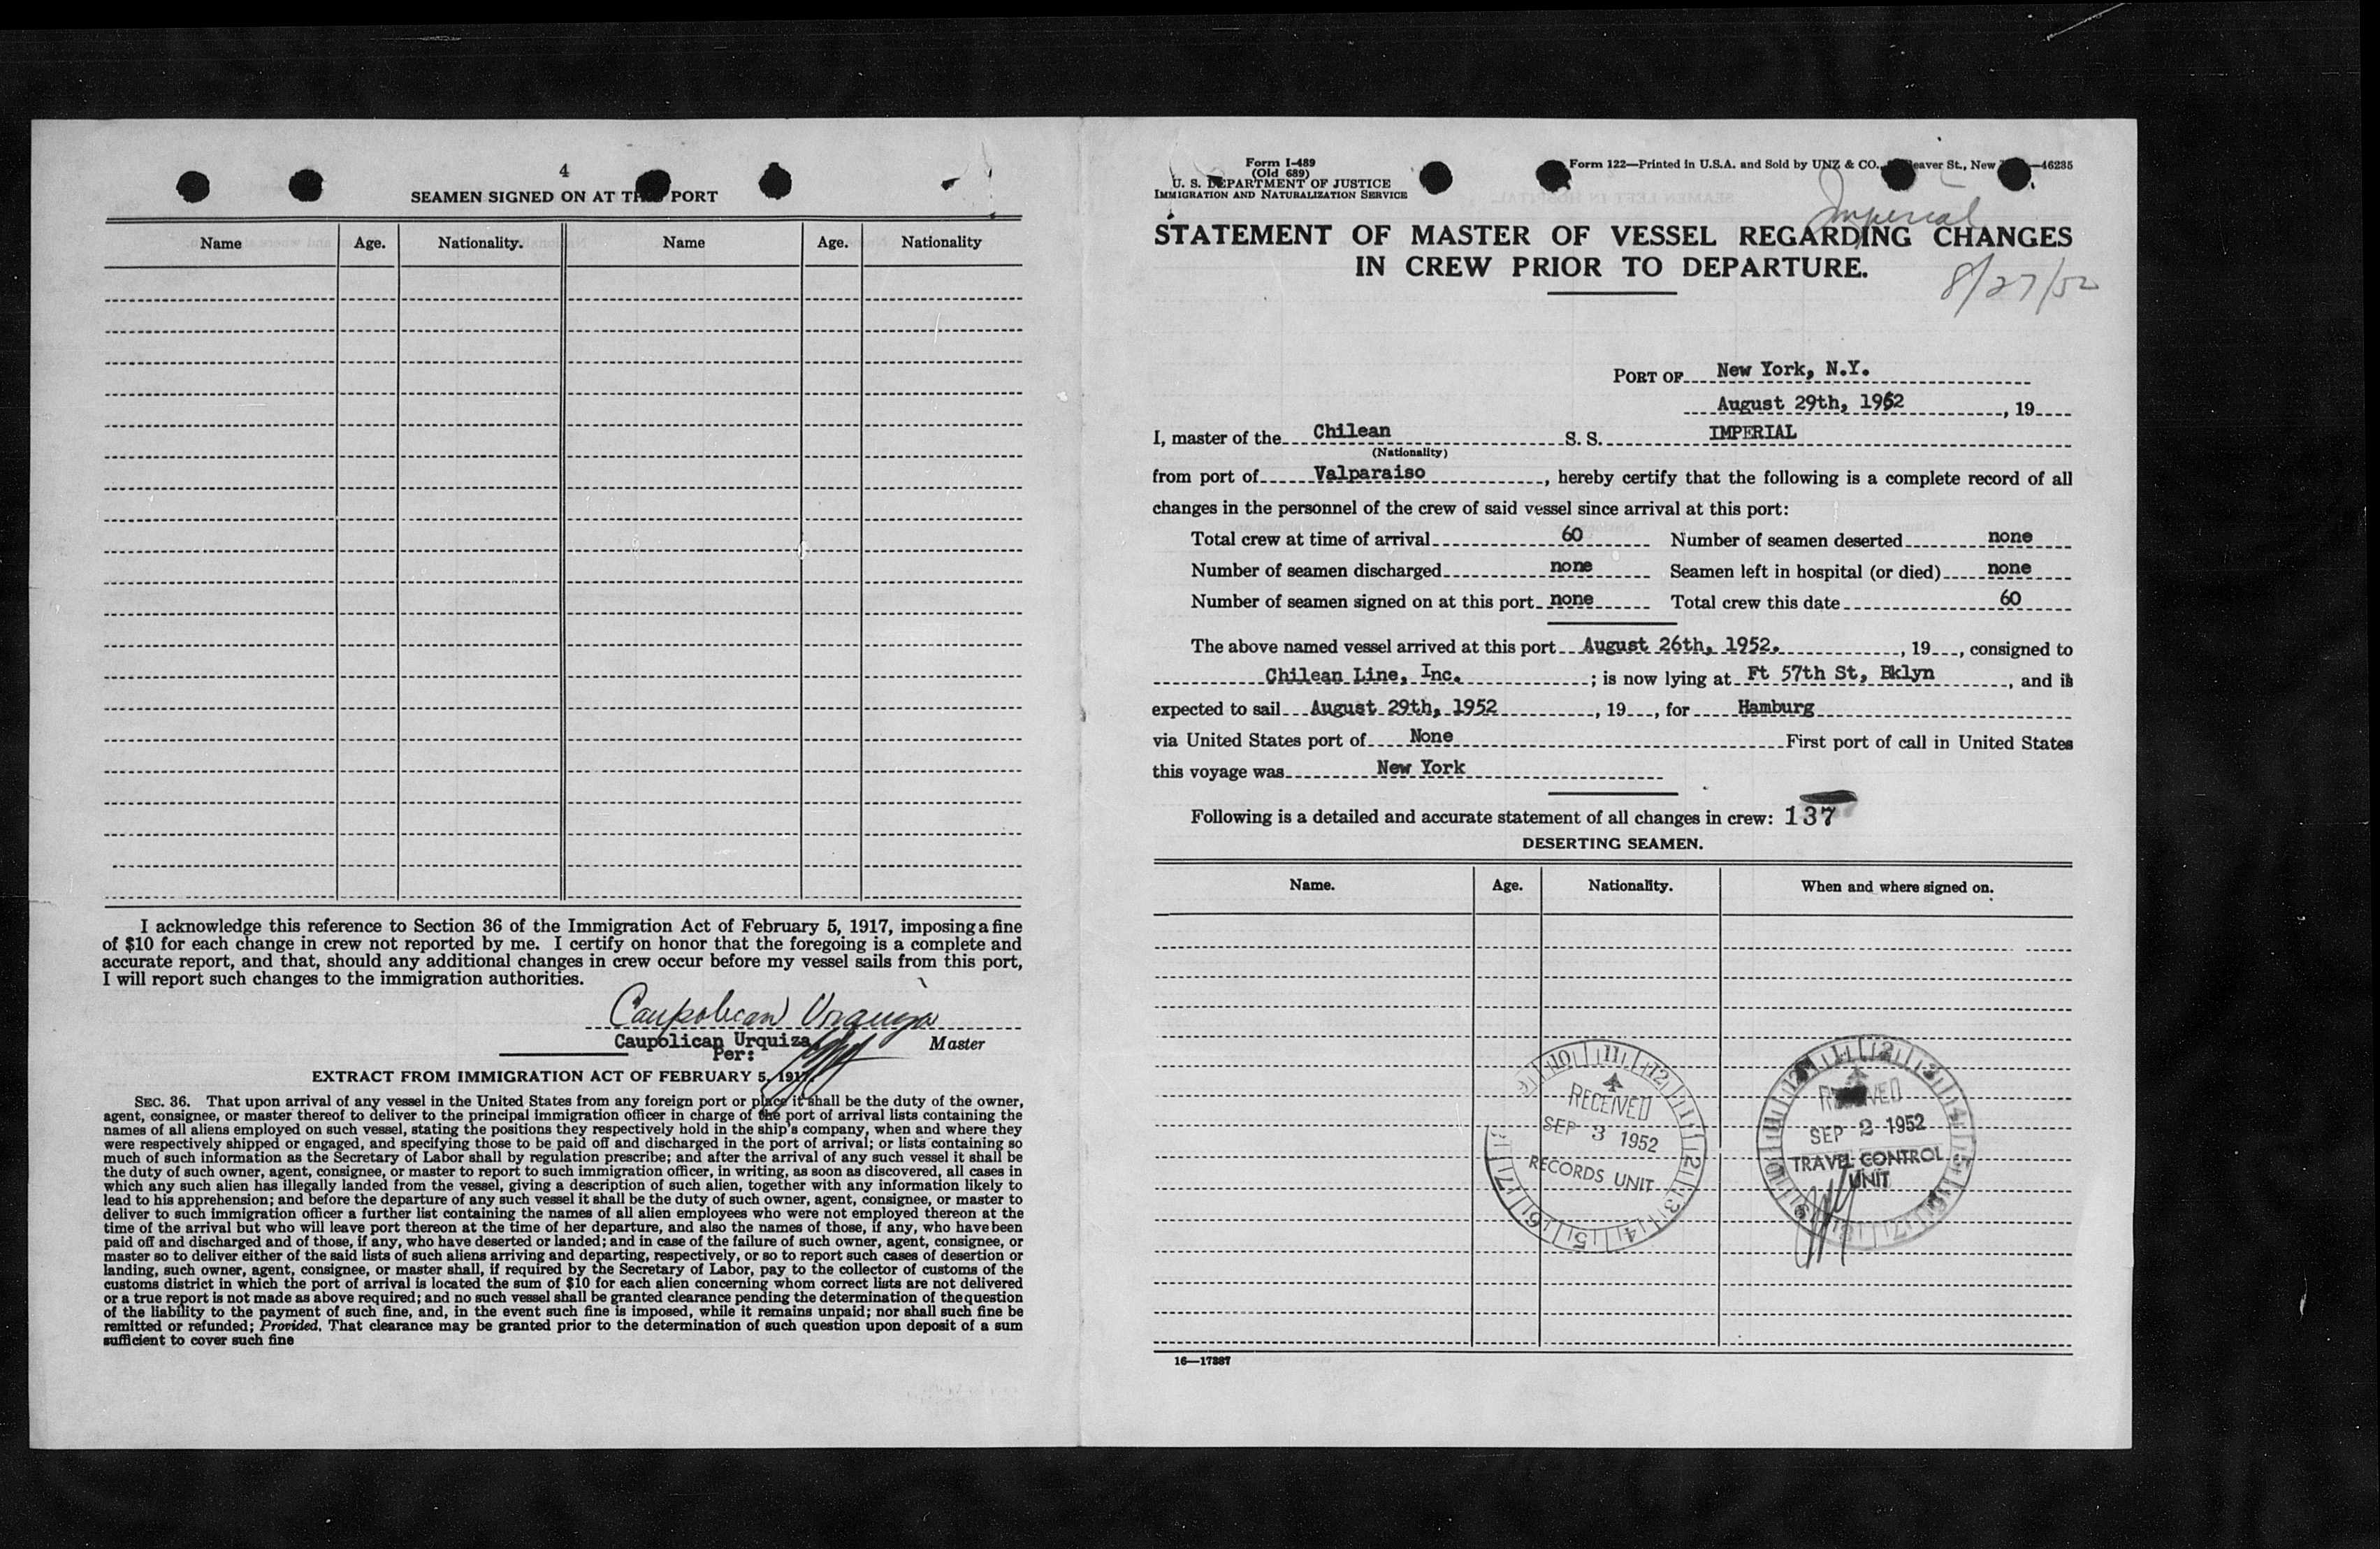 4
SEAMEN SIGNED ON AT THIS PORT
Name Age. Nationality. Name Age. Nationality
I acknowledge this reference to Section 36 of the Immigration Act of February 5, 1917, imposing a fine
of $10 for each change in crew not reported by me. I certify on honor that the foregoing is a complete and
accurate report, and that, should any additional changes in crew occur before my vessel sails from this port,
I will report such changes to the immigration authorities.
Caupolican Urquiza
Caupolican Urquiza Master
Per:
EXTRACT FROM IMMIGRATION ACT OF FEBRUARY 5, 1917
SEC. 36. That upon arrival of any vessel in the United States from any foreign port or place it shall be the duty of the owner,
agent, consignee, or master thereof to deliver to the principal immigration officer in charge of the port of arrival lists containing the
names of all aliens employed on such vessel, stating the positions they respectively hold in the ship's company, when and where they
were respectively shipped or engaged, and specifying those to be paid off and discharged in the port of arrival; or lists containing so
much of such information as the Secretary of Labor shall by regulation prescribe; and after the arrival of any such vessel it shall be
the duty of such owner, agent, consignee, or master to report to such immigration officer, in writing, as soon as discovered, all cases in
which any such alien has illegally landed from the vessel, giving a description of such alien, together with any information likely to
lead to his apprehension; and before the departure of any such vessel it shall be the duty of such owner, agent, consignee, or master to
deliver to such immigration officer a further list containing the names of all alien employees who were not employed thereon at the
time of the arrival but who will leave port thereon at the time of her departure, and also the names of those, if any, who have been
paid off and discharged and of those, if any, who have deserted or landed; and in case of the failure of such owner, agent, consignee, or
master so to deliver either of the said lists of such aliens arriving and departing, respectively, or so to report such cases of desertion or
landing, such owner, agent, consignee, or master shall, if required by the Secretary of Labor, pay to the collector of customs of the
customs district in which the port of arrival is located the sum of $10 for each alien concerning whom correct lists are not delivered
or a true report is not made as above required; and no such vessel shall be granted clearance pending the determination of the question
of the liability to the payment of such fine, and, in the event such fine is imposed, while it remains unpaid; nor shall such fine be
remitted or refunded; Provided, That clearance may be granted prior to the determination of such question upon deposit of a sum
sufficient to cover such fine
Form I-489
(Old 689)
U. S. DEPARTMENT OF JUSTICE
IMMIGRATION AND NATURALIZATION SERVICE
Form 122—Printed in U.S.A. and Sold by UNZ & CO., eaver St., New —46235
Imperial
STATEMENT OF MASTER OF VESSEL REGARDING CHANGES
IN CREW PRIOR TO DEPARTURE.
8/27/52
PORT OF New York, N.Y.
August 29th, 1952, 19
I, master of the Chilean S. S. IMPERIAL
(Nationality)
from port of Valparaiso, hereby certify that the following is a complete record of all
changes in the personnel of the crew of said vessel since arrival at this port:
Total crew at time of arrival 60 Number of seamen deserted none
Number of seamen discharged none Seamen left in hospital (or died) none
Number of seamen signed on at this port none Total crew this date 60
The above named vessel arrived at this port August 26th, 1952., 19, consigned to
Chilean Line, Inc. ; is now lying at Ft 57th St, Bklyn, and is
expected to sail August 29th, 1952, 19, for Hamburg
via United States port of None First port of call in United States
this voyage was New York
Following is a detailed and accurate statement of all changes in crew: 137
DESERTING SEAMEN.
Name. Age. Nationality. When and where signed on.
RECEIVED
SEP 3 1952
RECORDS UNIT
RECEIVED
SEP 2 1952
TRAVEL CONTROL
UNIT
16—17887